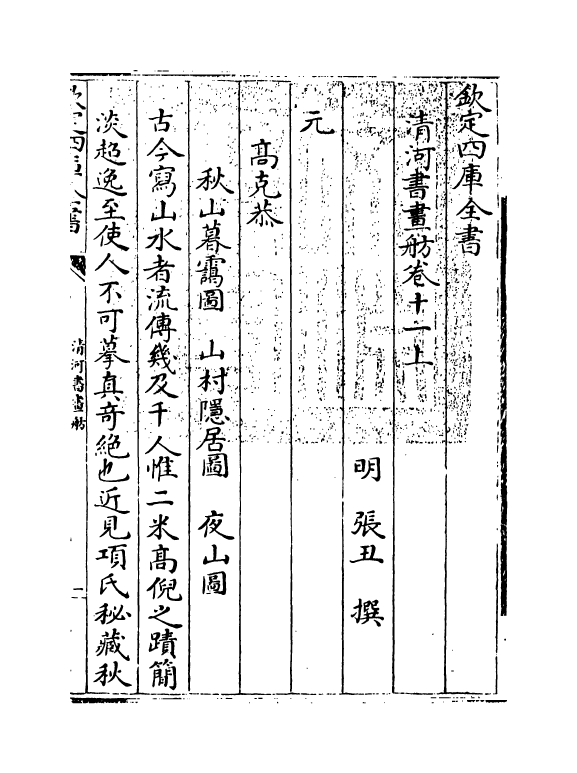 欽定四庫全書
清河書畫舫卷十一上
明 張丑 撰
元
高克恭
秋山暮靄圖 山村隱居圖 夜山圖
古今寫山水者流傳幾及千人惟二米高倪之蹟簡
淡超逸至使人不可摹真奇絶也近見項氏秘藏秋
欽定四庫全書
清河書畫舫
一